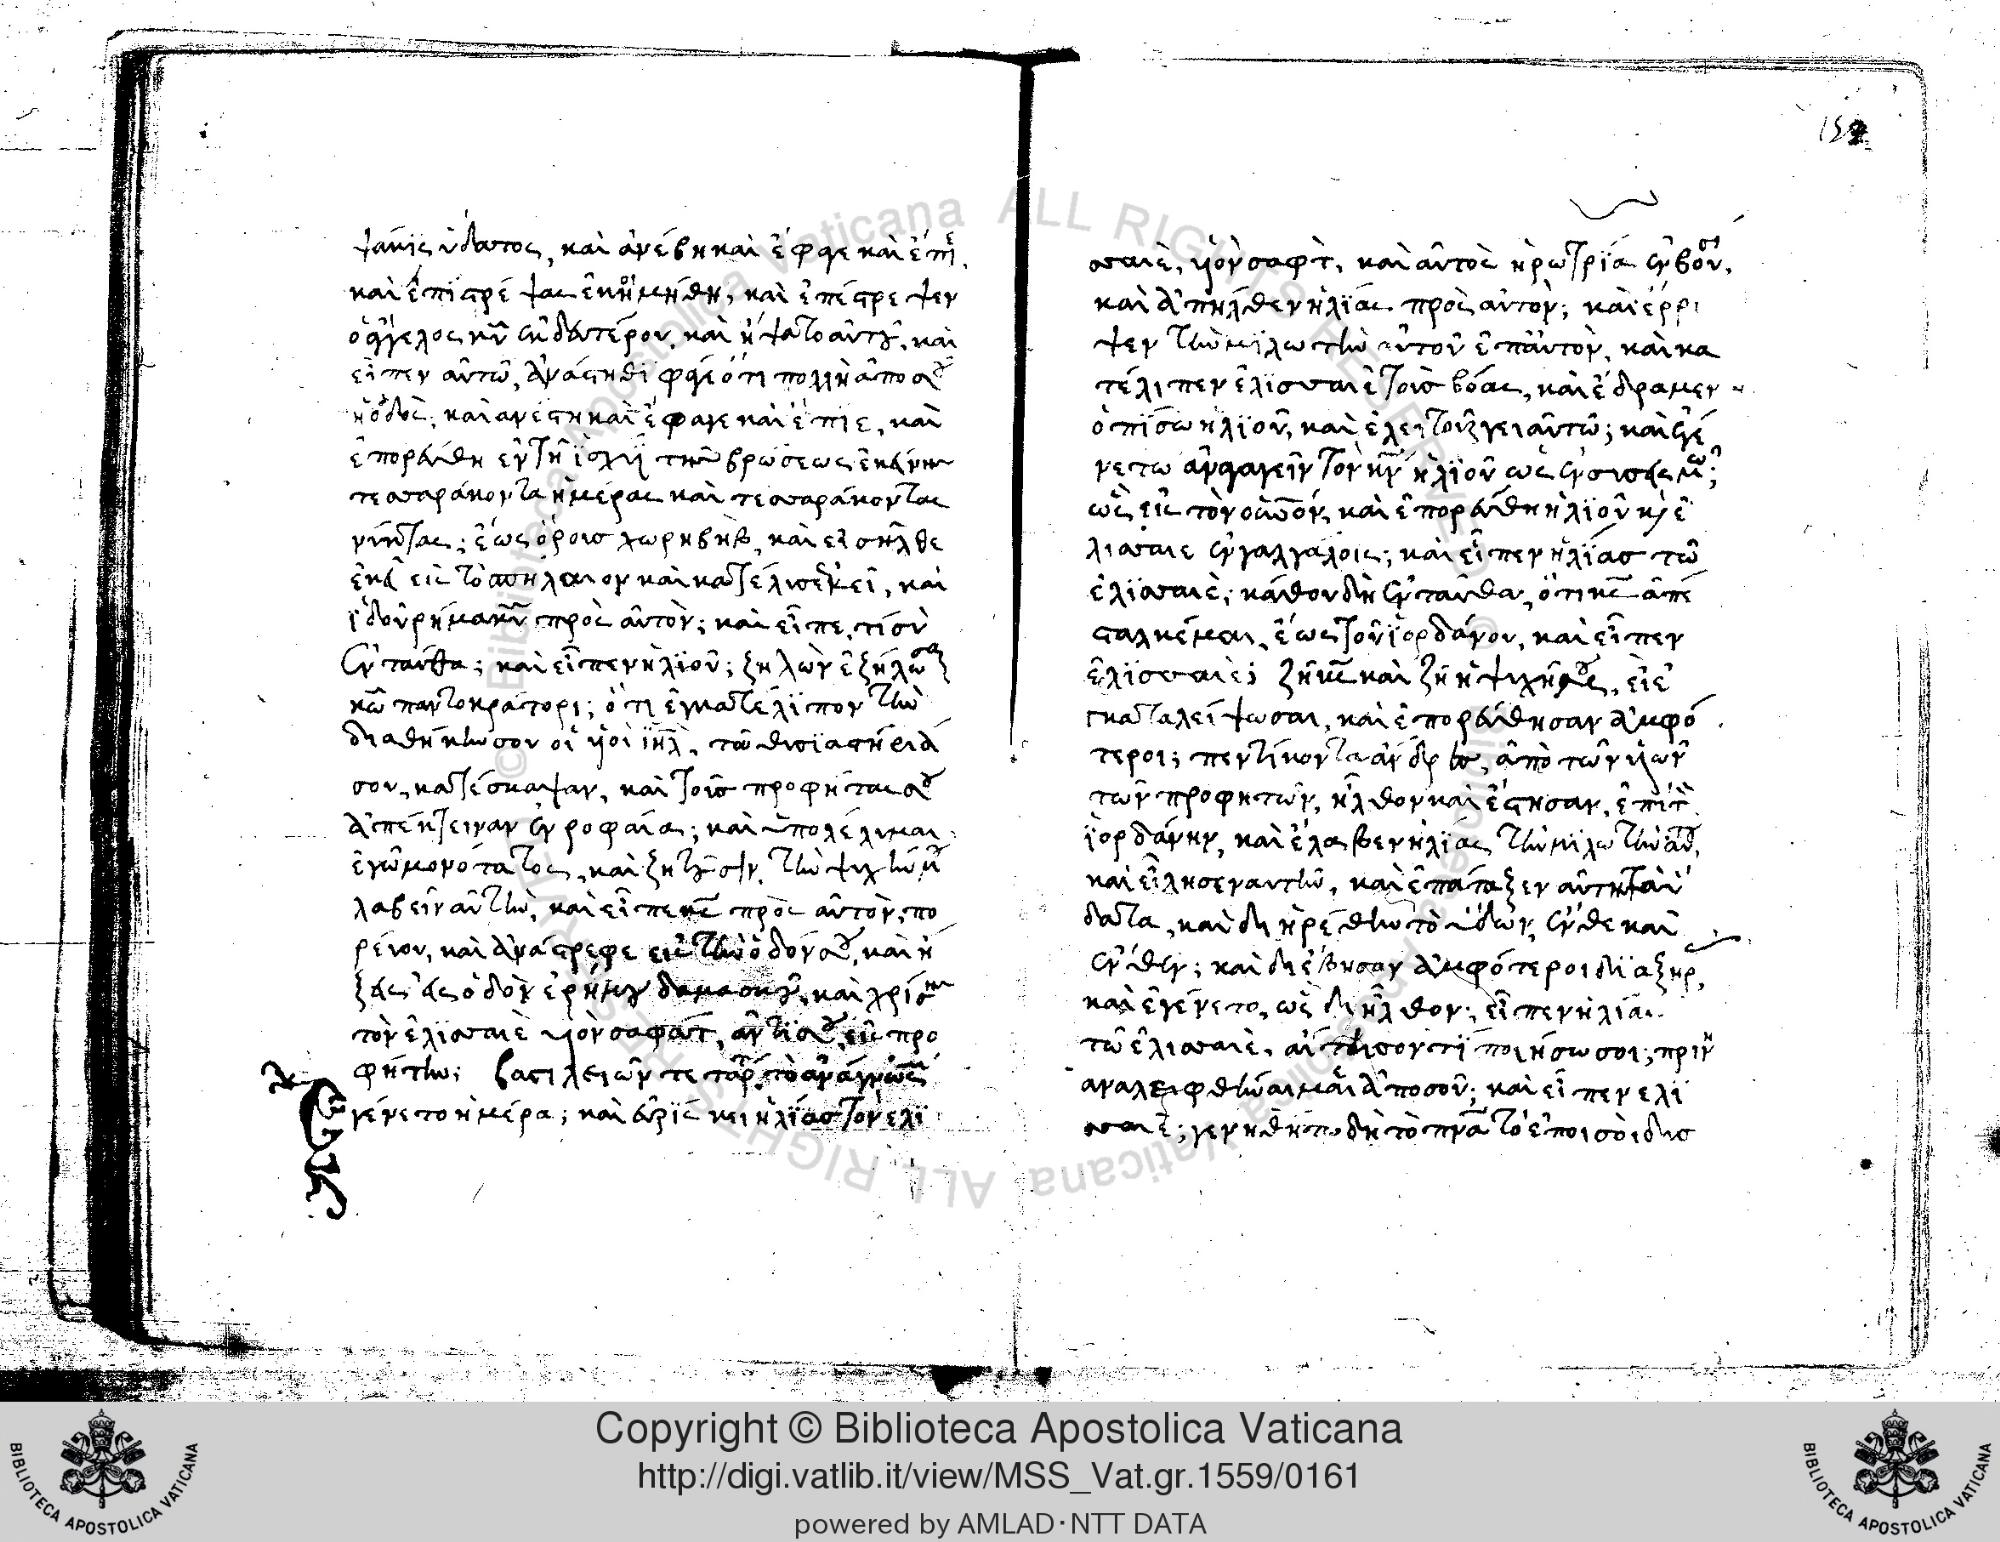 ψάκις ὕδατος, καὶ ἀνέβη καὶ ἔφαγε καὶ ἔπιε,
καὶ ἐπιστρέψας ἐκοιμήθη, καὶ ἐπέστρεψεν
ὁ ἄγγελος κυ ἐκ δευτέρου, καὶ ἥψατο αὐτοῦ, καὶ
εἶπεν αὐτῶ, ἀνάστηθι φάγε ὅτι πολλὴ ἀπὸ σοῦ
ἡ ὁδὸς, καὶ ἀνέστη καὶ ἔφαγε καὶ ἔπιε, καὶ
ἐπορεύθη ἐν τῆ ἰσχύϊ τῆς βρώσεως ἐκείνης
τεσσαράκοντα ἡμέρας καὶ τεσσαράκοντας
νύκτας; ἕως ὄρους χωρὴβ, καὶ εἰσῆλθε
ἐκεῖ εἰς τὸ σπήλαιον καὶ κατέλυσε ἐκεῖ, καὶ
ἰδοὺ ρῆμα κυ πρὸς αὐτὸν; καὶ εἶπε, τί σὺ
ἐνταῦθα; καὶ εἶπεν ἠλιοῦ; ζηλῶν ἐζήλωσα
κω παντοκράτορι; ὅτι ἐγκατέλιπον τὴν
διαθήκην σου οἱ υἱοὶ ιηλ, τὰ θυσιαστήριά
σου, κατέσκαψαν, καὶ τοὺς προφήτας σου
ἀπέκτειναν ἐν ρομφαία; καὶ ὑπολέλιμαι
ἐγὼ μονότατος, καὶ ζητοῦσιν, τὴν ψυχήν μου
λαβεῖν αὐτὴν, καὶ εἶπε κς πρὸς αὐτὸν; πο
ρεύου, καὶ ἀνάστρεφε εἰς τὴν ὁδόν σου, καὶ ἥ
ξεις εἰς ὁδὸν ἐρήμου δαμασκοῦ, καὶ χρίσης
τὸν ἐλισσαιὲ υἱὸν σαφὰτ, ἀντὶ σοῦ εἰς προ
φήτην; βασιλειῶν τετάρτης τὸ ἀνάγνωσμα
Ἐγένετο ἡμέρα; καὶ εὑρίσκει ἠλίας τὸν ἐλι
152
σσαιὲ, υἱὸν σαφὰτ, καὶ αὐτὸς ἠρωτρία ἐν βουσὶ,
καὶ ἀπῆλθεν ἠλίας πρὸς αὐτὸν; καὶ ἔρρι
ψεν τὴν μιλωτὴν αὐτοῦ ἐπ' αὐτὸν, καὶ κα
τέλιπεν ἐλισσαιὲ τοὺς βόας, καὶ ἔδραμεν
ὀπίσω ἠλιοῦ, καὶ ἐλειτούργει αὐτῶ; καὶ ἐγέ
νετω ἀναγαγεῖν τὸν κν ἠλιοῦ ὡς ἐν συσεισμῶ;
ὡς εἰς τὸν οὐνόν, καὶ ἐπορεύθη ἠλιοῦ κὶ ἐ
λισσαιε ἐν γαλγάλοις; καὶ εἶπεν ἠλίας τῶ
ἐλισσαιὲ; κάθου δὴ ἐνταῦθα, ὅτι κς ἀπέ
σταλκέ με, ἕως τοῦ ἰορδάνου, καὶ εἶπεν
ἐλισσαιὲ; ζῆ κς καὶ ζῆ ἡ ψυχή σου, εἰ ἐ
γκαταλείψω σαι, καὶ ἐπορεύθησαν ἀμφό
τεροι; πεντίκοντα ἄνδρες, ἀπὸ τῶν υἱῶν
τῶν προφητῶν, ἦλθον καὶ ἔστησαν, ἐπὶ τὸν
ἰορδάνην, καὶ ἔλαβεν ἠλίας τὴν μιλωτὴν αὐτοῦ,
καὶ εἴλησεν αὐτὴν, καὶ ἐπάταξεν αὐτῆ τὰ ὕ
δατα, καὶ διηρέθην τὸ ὕδωρ, ἔνθε καὶ
ἔνθεν; καὶ διέβησαν ἀμφότεροι διὰ ξηρ,
καὶ ἐγένετο, ὡς διῆλθον; εἶπεν ἠλίας
τῶ ἐλισσαιὲ, αἴτησον τί ποιήσω σοι; πρὶν
αναλειφθῆναι μαι ἀπὸ σοῦ; καὶ εἶπεν ἐλι
σσαιὲ; γενηθήτω δὴ τὸ πνα τὸ ἐπὶ σοὶ δισ